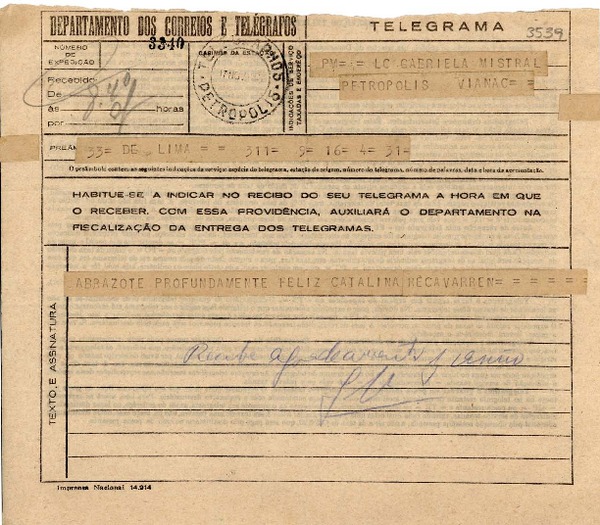 DEPARTAMENTO DOS CORREIOS E TELÉGRAFOS
TELEGRAMA
3539
3340
NÚMERO
DE
EXPEDIÇÃO
CARIMBO DA ESTAÇÃO
PETROPOLIS
INDICAÇÕES DE SERVIÇO
TAXADAS E ENDEREÇO
PM= = LC GABRIELA MISTRAL
PETROPOLIS VIANAC= =
Recebido
De
às horas
por
PREÂM
33= DE LIMA = = 311- 9- 16- 4- 31-
O preâmbulo contém as seguintes indicações de serviço: espécie do telegrama, estação de origem, número do telegrama, número de palavras, data e hora da apresentação.
HABITUE-SE A INDICAR NO RECIBO DO SEU TELEGRAMA A HORA EM QUE
O RECEBER. COM ESSA PROVIDÊNCIA, AUXILIARÁ O DEPARTAMENTO NA
FISCALIZAÇÃO DA ENTREGA DOS TELEGRAMAS.
TEXTO E ASSINATURA
ABRAZOTE PROFUNDAMENTE FELIZ CATALINA RECAVARREN= = = = = =
Imprensa Nacional 14.914